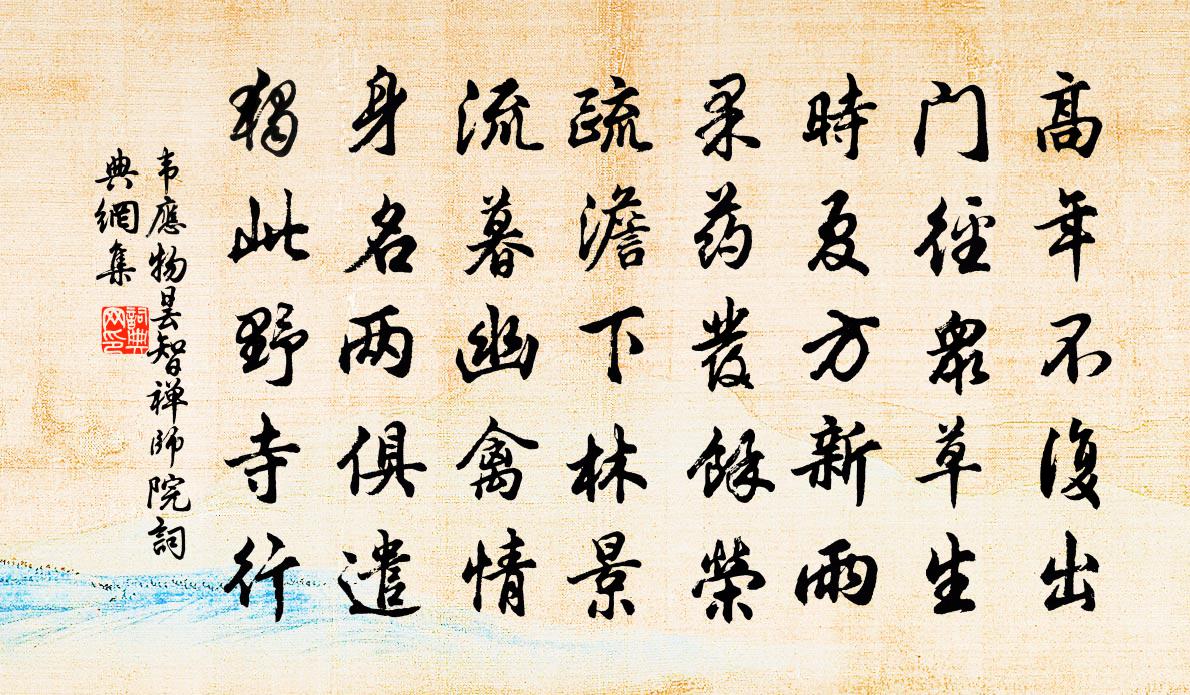 高年不復出
门徑眾草生
時夏方新雨
果药發餘榮
疏澹下林景
流暮幽禽情
身名两俱遣
獨此野寺行
韦應物曇智禅師院詞
典網集
詞典
网印